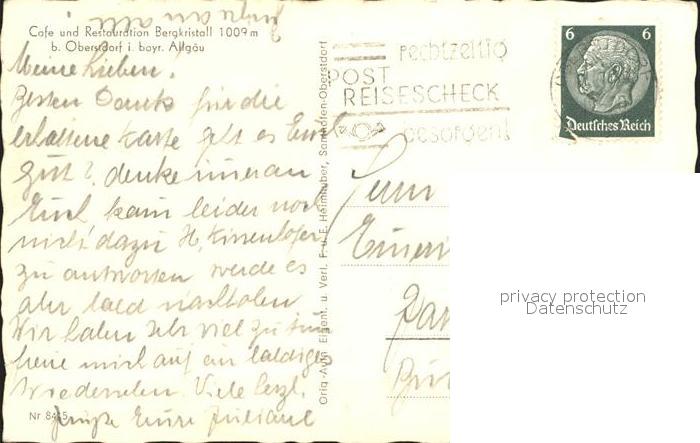 Grüße an alle!
Cafe und Restauration Bergkristall 1009 m
b. Oberstdorf i. bayr. Allgäu
Meine Lieben!
Besten Dank für die
erhaltene Karte geht es Euch
gut?, denke immer an
Euch kam leider noch
nicht dazu H.
zu antworten werde es
aber bald nachholen
Wir haben sehr viel zu tun
freue mich auf ein baldiges
Wiedersehen. Viele herzl.
Grüße Eure Juliane
Nr 8445
Orig.-Aufn. Eigent. u. Verl. F. u. E. Heimhuber, Sonthofen-Oberstdorf
rechtzeitig
POST
REISESCHECK
besorgen!
6 6
Deutsches Reich
privacy protection
Datenschutz